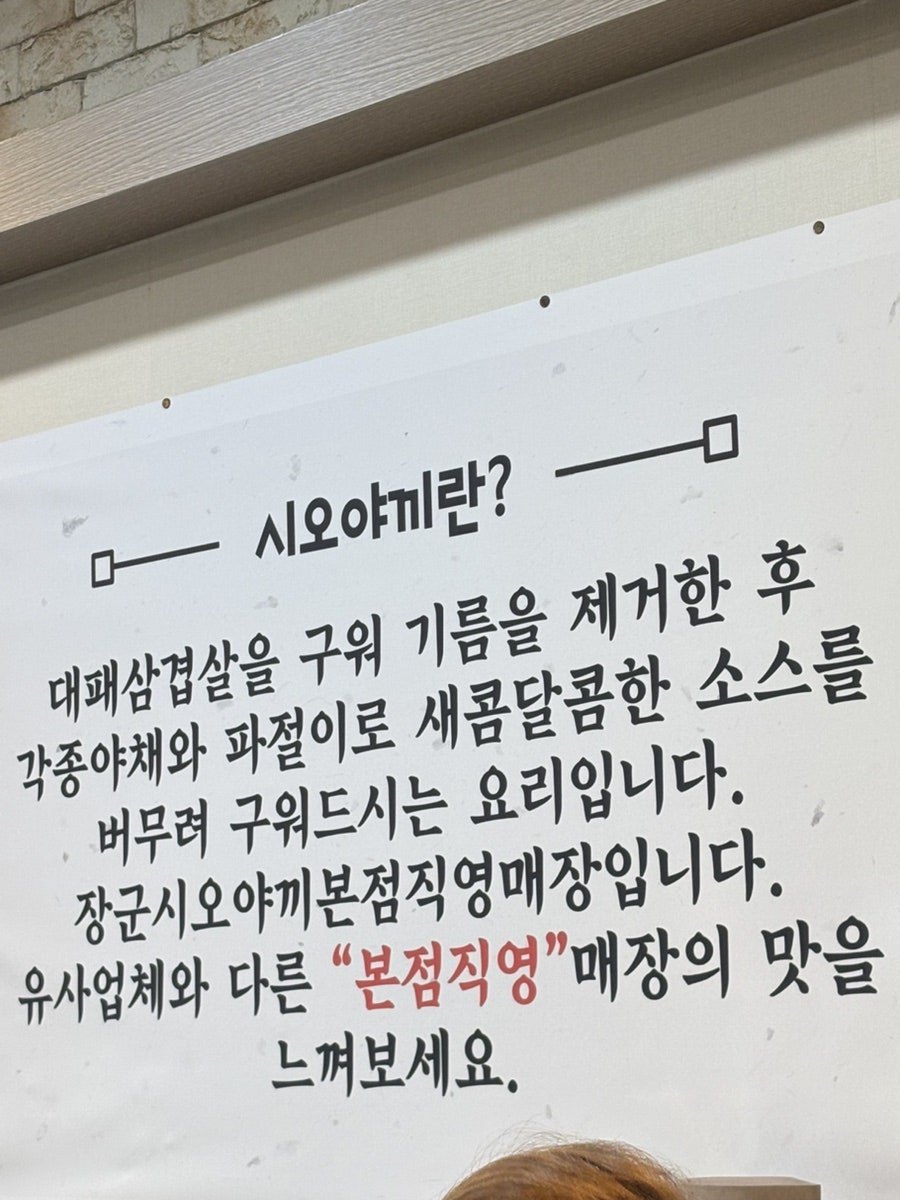 시오야끼란?
대패삼겹살을 구워 기름을 제거한 후
각종야채와 파절이로 새콤달콤한 소스를
버무려 구워드시는 요리입니다.
장군시오야끼본점직영매장입니다.
유사업체와 다른 “본점직영”매장의 맛을
느껴보세요.